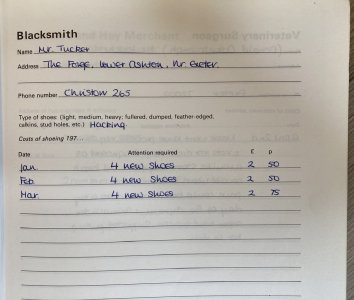 Blacksmith
Name Mr. Tucker
Address The Forge, Lower Ashton, Nr. Exeter.
Phone number Christow 265
Type of shoes: (light, medium, heavy; fullered, dumped, feather-edged,
calkins, stud holes, etc.) Hacking.
Costs of shoeing 197
Date Attention required £ p
Jan 4 new shoes 2 50
Feb 4 new shoes 2 50
Mar 4 new shoes 2 75